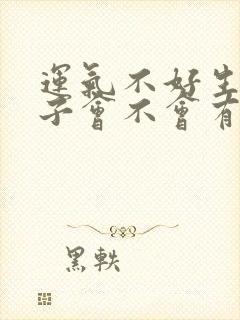 運氣不好生
子會不會有
黑軼